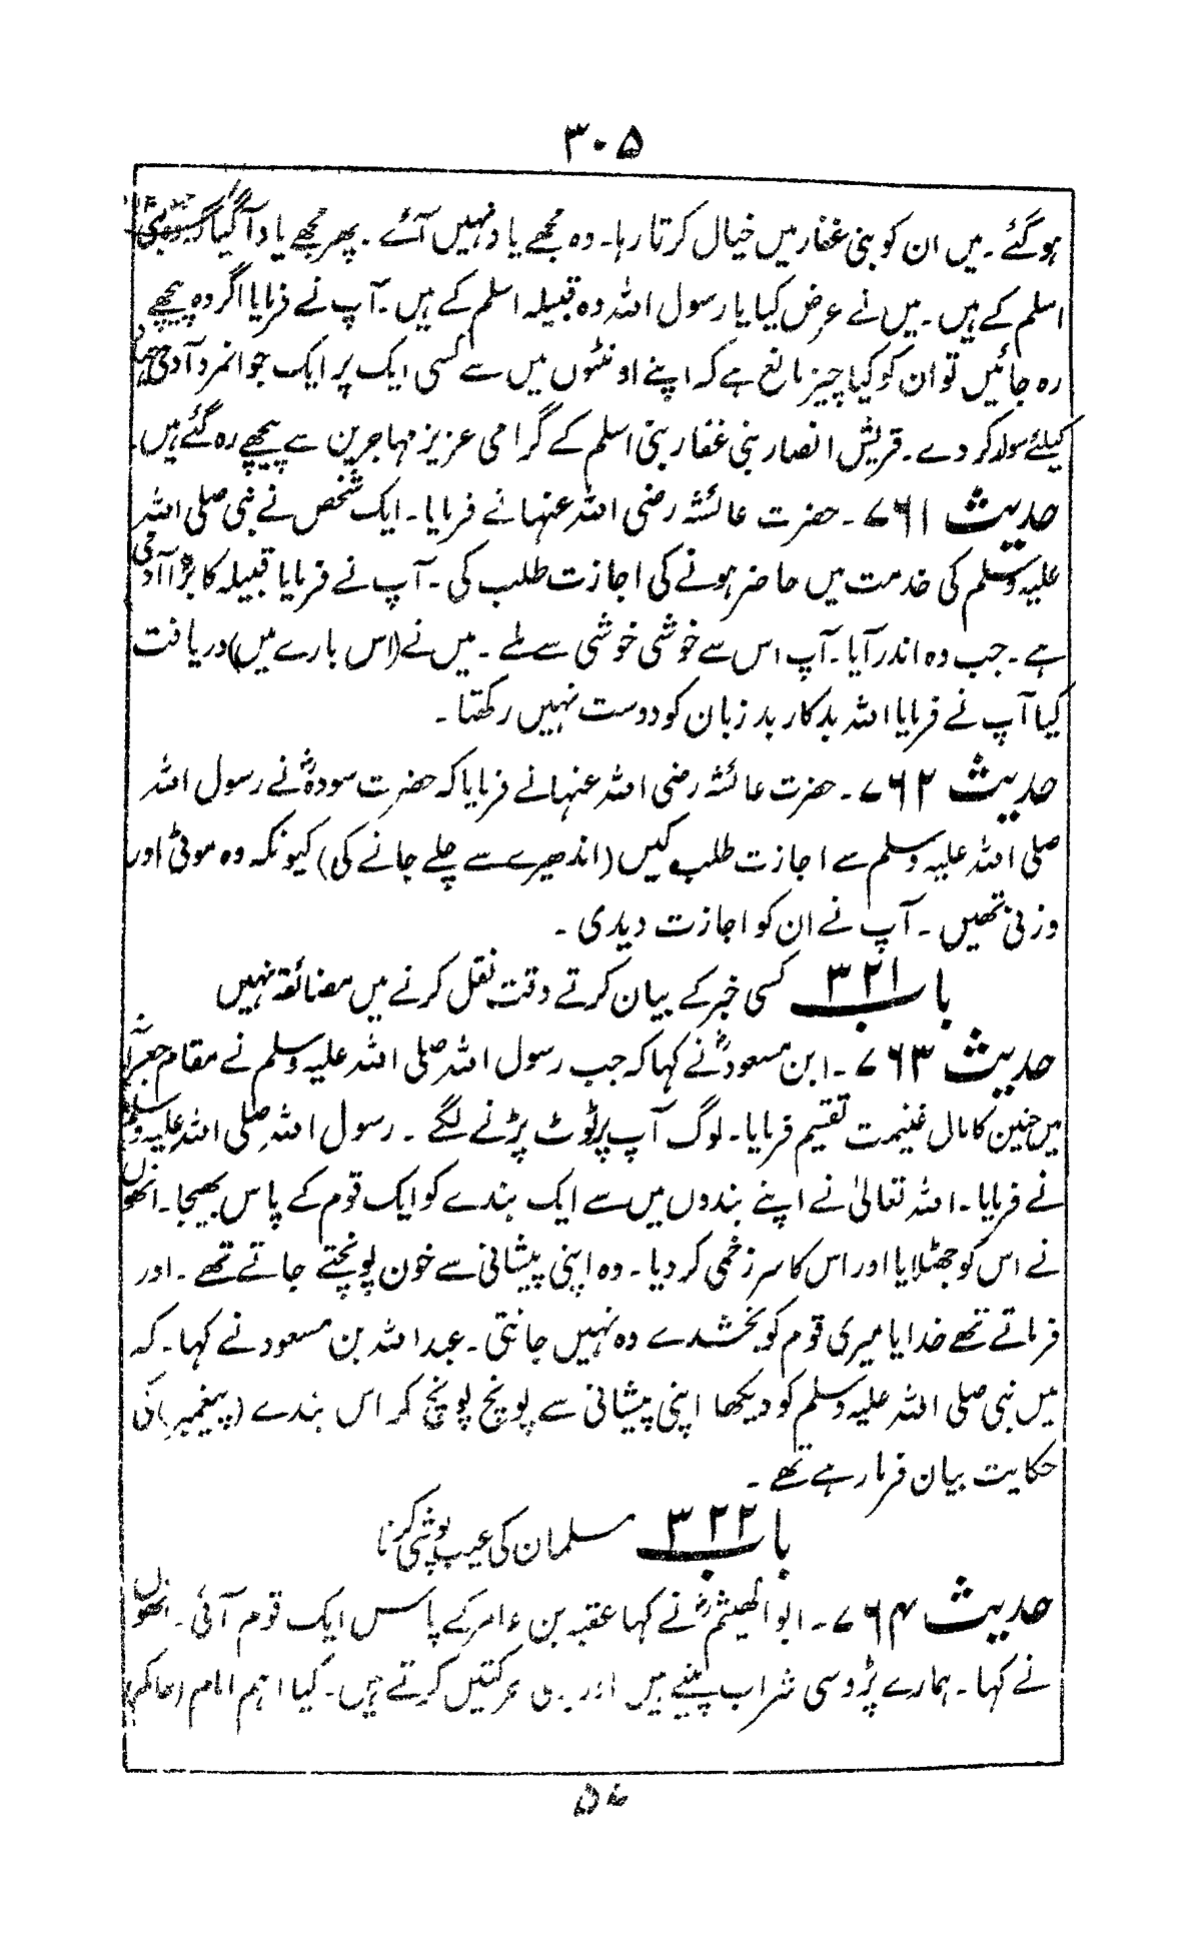 ۳۰۵
ہوگئے۔ میں ان کو بنی غفار میں خیال کرتا رہا۔ وہ مجھے یاد نہیں آئے۔ پھر مجھے یاد آگیا کہ وہ بنی
اسلم کے ہیں۔ میں نے عرض کیا یا رسول اللہ وہ قبیلہ اسلم کے ہیں۔ آپ نے فرمایا اگر وہ پیچھے
رہ جائیں تو ان کو کیا چیز مانع ہے کہ اپنے اونٹوں میں سے کسی ایک پر ایک جوانمرد آدمی
کیلئے سوار کر دے۔ قریش انصار بنی غفار بنی اسلم کے گرامی عزیز مہاجرین سے پیچھے رہ گئے ہیں۔
حدیث ۷۶۱۔ حضرت عائشہ رضی اللہ عنہا نے فرمایا۔ ایک شخص نے نبی صلی اللہ
علیہ وسلم کی خدمت میں حاضر ہونے کی اجازت طلب کی۔ آپ نے فرمایا قبیلہ کا بڑا آدمی
ہے۔ جب وہ اندر آیا۔ آپ اس سے خوشی خوشی سے ملے۔ میں نے (اس بارے میں) دریافت
کیا آپ نے فرمایا اللہ بدکار بد زبان کو دوست نہیں رکھتا۔
حدیث ۷۶۲۔ حضرت عائشہ رضی اللہ عنہا نے فرمایا کہ حضرت سودہؓ نے رسول اللہ
صلی اللہ علیہ وسلم سے اجازت طلب کیں (اندھیرے سے چلے جانے کی) کیونکہ وہ موٹی اور
وزنی تھیں۔ آپ نے ان کو اجازت دیدی۔
باب ۳۲۱ کسی خبر کے بیان کرتے وقت نقل کرنے میں مضائقہ نہیں
حدیث ۷۶۳۔ ابن مسعودؓ نے کہا کہ جب رسول اللہ صلی اللہ علیہ وسلم نے مقام جعرانہ
میں حنین کا مال غنیمت تقسیم فرمایا۔ لوگ آپ پر ٹوٹ پڑنے لگے۔ رسول اللہ صلی اللہ علیہ وسلم
نے فرمایا۔ اللہ تعالیٰ نے اپنے بندوں میں سے ایک بندے کو ایک قوم کے پاس بھیجا۔ انھوں
نے اس کو جھٹلایا اور اس کا سر زخمی کر دیا۔ وہ اپنی پیشانی سے خون پونچتے جاتے تھے۔ اور
فرماتے تھے خدایا میری قوم کو بخشدے وہ نہیں جانتی۔ عبد اللہ بن مسعود نے کہا۔ کہ
میں نبی صلی اللہ علیہ وسلم کو دیکھا اپنی پیشانی سے پونچ پونچ کر اس بندے (پیغمبر) کی
حکایت بیان فرما رہے تھے۔
باب ۳۲۲ مسلمان کی عیب پوشی کرنا
حدیث ۷۶۴۔ ابو الھیثمؓ نے کہا عقبہ بن عامر کے پاس ایک قوم آئی۔ انھوں
نے کہا۔ ہمارے پڑوسی شراب پیتے ہیں اور حرکتیں کرتے ہیں۔ کیا ہم امام (حاکم)